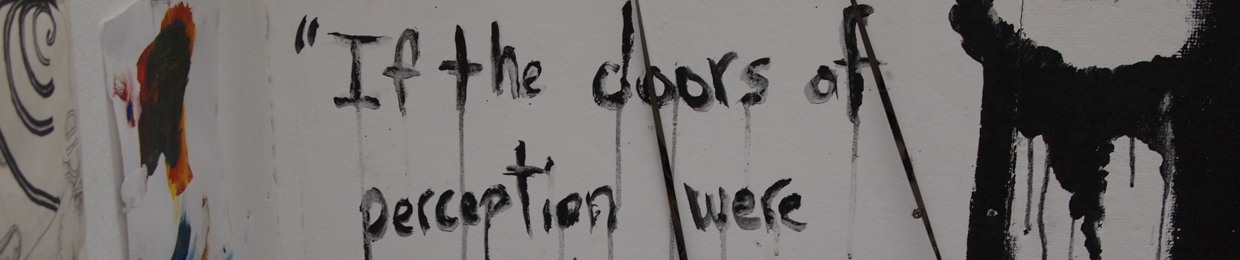 "If the doors of
perception were